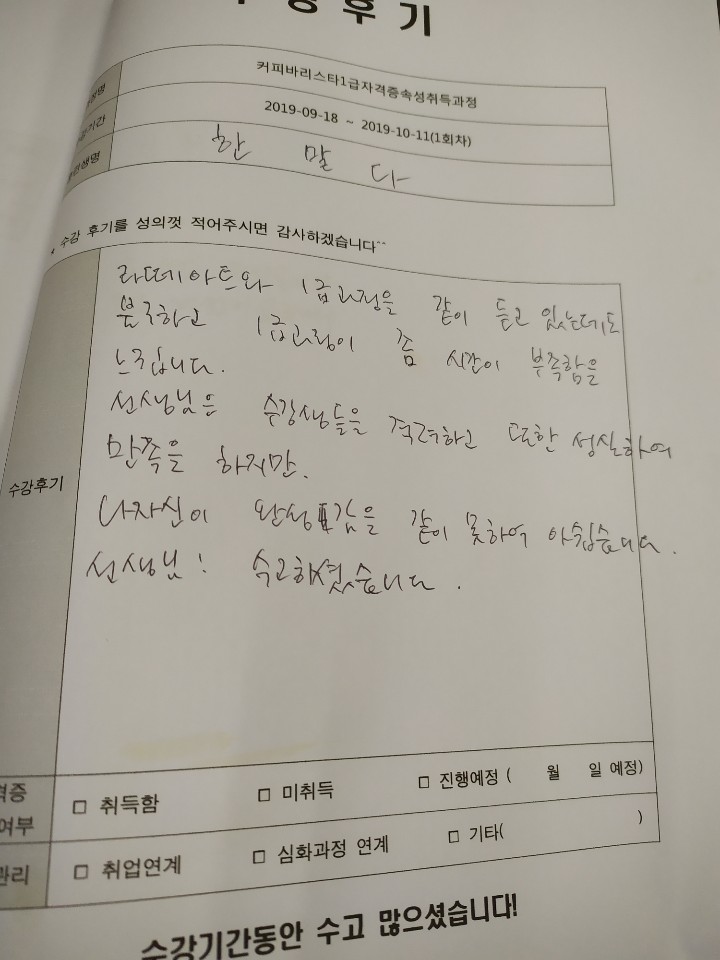 수강후기
커피바리스타1급자격증속성취득과정
기간 2019-09-18 ~ 2019-10-11(1회차)
생명 한 말 다
* 수강 후기를 성의껏 적어주시면 감사하겠습니다^^
수강후기
라떼아트와 1급과정을 같이 듣고 있는데도
불구하고 1급과정이 좀 시간이 부족함을
느낍니다.
선생님은 수강생들을 격려하고 또한 성실하여
만족을 하지만.
나자신이 완성감을 같이 못하여 아쉽습니다.
선생님! 수고하셨습니다.
격증 여부 □ 취득함 □ 미취득 □ 진행예정 ( 월 일 예정)
관리 □ 취업연계 □ 심화과정 연계 □ 기타( )
수강기간동안 수고 많으셨습니다!